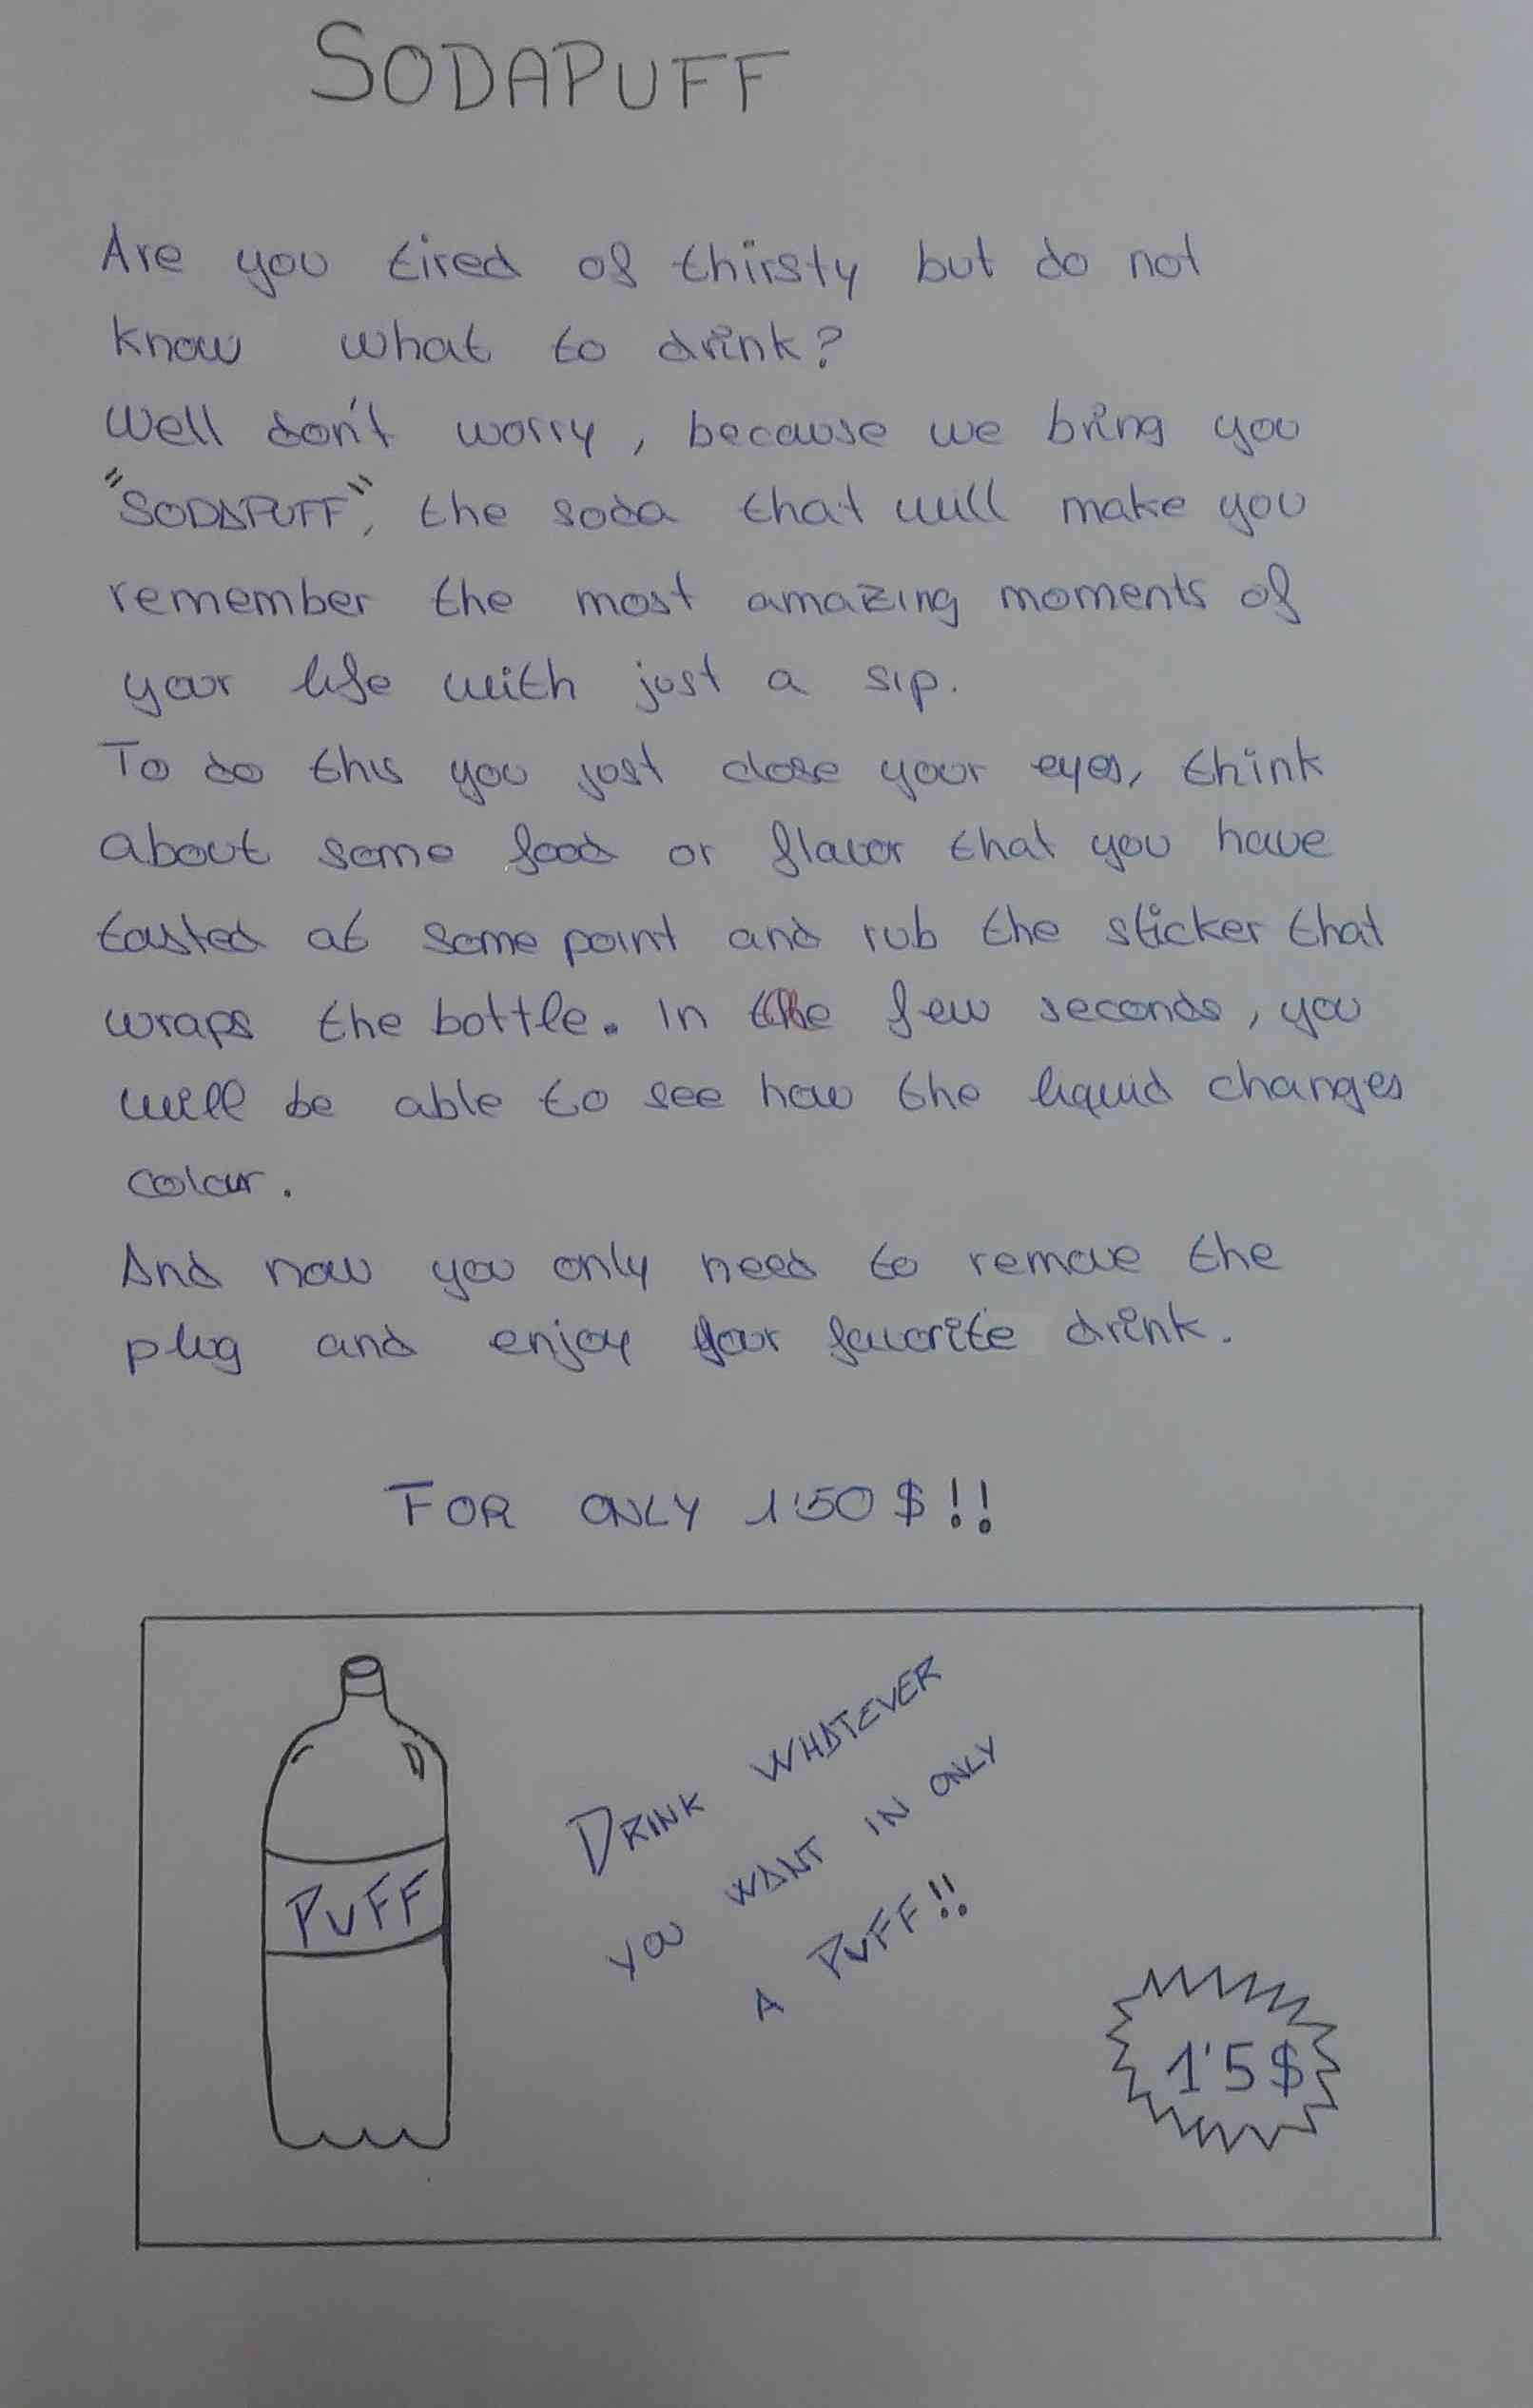 SODAPUFF
Are you tired of thirsty but do not
know what to drink?
Well don't worry, because we bring you
"SODAPUFF", the soda that will make you
remember the most amazing moments of
your life with just a sip.
To do this you just close your eyes, think
about some food or flavor that you have
tasted at some point and rub the sticker that
wraps the bottle. In the few seconds, you
will be able to see how the liquid changes
colour.
And now you only need to remove the
plug and enjoy your favorite drink.
FOR ONLY 1'50 $!!
PUFF
DRINK WHATEVER
YOU WANT IN ONLY
A PUFF!!
1'5 $